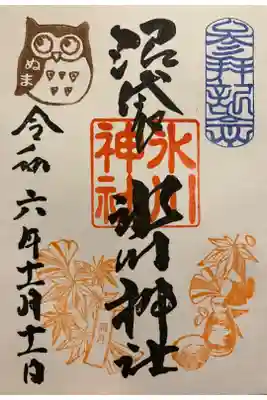 参拝記念
沼袋氷川神社
氷川
神社
令和六年十一月十一日
ぬま